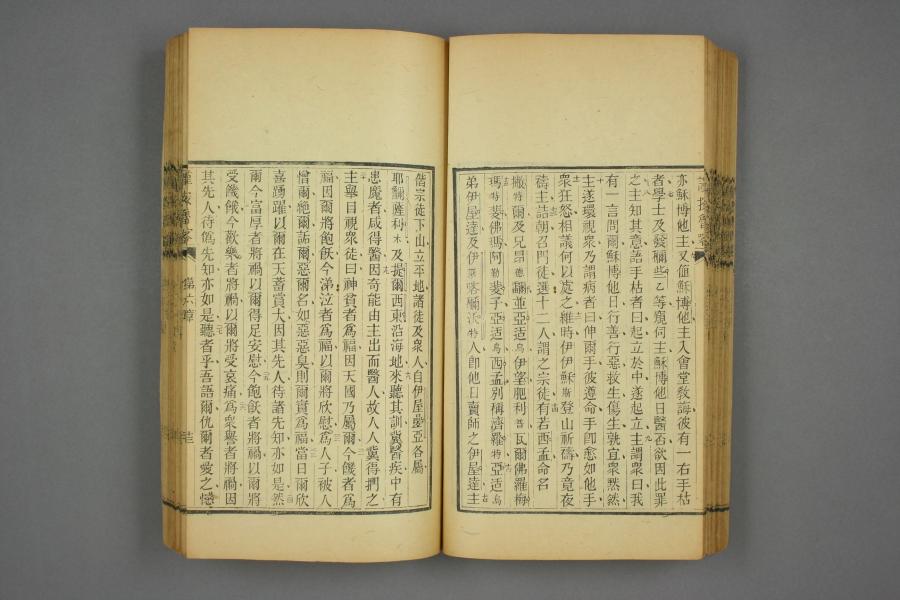 亦穌博他主又値穌博他主入會堂敎誨彼有一右手枯
者學士及發彌些乙等窺伺主穌博他日醫否欲因此罪
之主知其意語手枯者曰起立於中遂起立主謂衆曰我
有一言問爾穌博他日行善行惡救生傷生孰宜衆黙然
主遂環視衆乃謂病者曰伸爾手彼遵命手卽愈如他手
衆狂怒相議何以處之維時伊伊穌斯登山祈禱乃竟夜
禱主詰朝召門徒選十二人謂之宗徒有若西孟命名
撇特爾及兄昂德曁亞适烏伊望肥利普瓦爾佛羅梅
瑪特斐佛瑪阿勒斐子亞适烏西孟别稱濟羅特亞适烏
弟伊屋達及伊斯喀爾沃特人卽他日賣師之伊屋達主
偕宗徒下山立平地諸徒及衆人自伊屋疊亞各屬
耶薩科木及提爾西東沿海地來聽其訓冀醫疾中有
患魔者咸得醫因奇能由主出而醫人故人人冀得捫之
主舉目視衆徒曰神貧者爲福因天國乃屬爾今饑者爲
福因爾將飽飫今涕泣者爲福以爾將欣慰爲人子被人
憎爾絶爾詬爾惡爾名如惡惡臭則爾實爲福當日爾欣
喜踴躍以爾在天蓄賞大因其先人待諸先知亦如是然
爾今富厚者將禍以爾得足安慰今飽飫者將禍以爾將
受饑餓今欲樂者將禍以爾將受哀痛爲衆譽者將禍因
其先人待僞先知亦如是聽者乎吾語爾仇爾者愛之憾
第六章